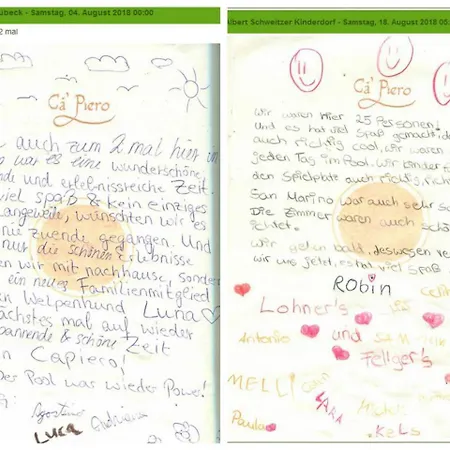 übeck - Samstag, 04. August 2018 00:00
2 mal
Ca' Piero
auch zum 2 mal hier in
war es eine wunderschöne,
nde und erlebnisreiche Zeit.
viel spaß & kein einziges
angeweile, wünschten wir es
nie zuende gegangen. Und
nur die schönen Erlebnisse
en wir mit nachhause, sondern
ein neues Familienmitglied
en Welpenhund Luna
ächstes mal auf wieder
pannende & schöne Zeit
in Capiero!
Der Pool war wieder Power!
Agostino
Luca
Albert Schweitzer Kinderdorf - Samstag, 18. August 2018 05:
Ca' Piero
Wir waren hier 25 Personen!
und es hat viel Spaß gemacht, d
auch richtig cool, wir waren
jeden Tag im Pool. Wir Kinder
den Spielplatz auch richtig, rich
San Marino war auch sehr sc
Die Zimmer waren auch schö
ichtet.
Wir gehen bald, deswegen ve
wir uns jetzt, es hat viel Spaß
Robin
Celin
Lohner's
Antonio und
Fellger's
MELLI
LARA
Paula
Kels